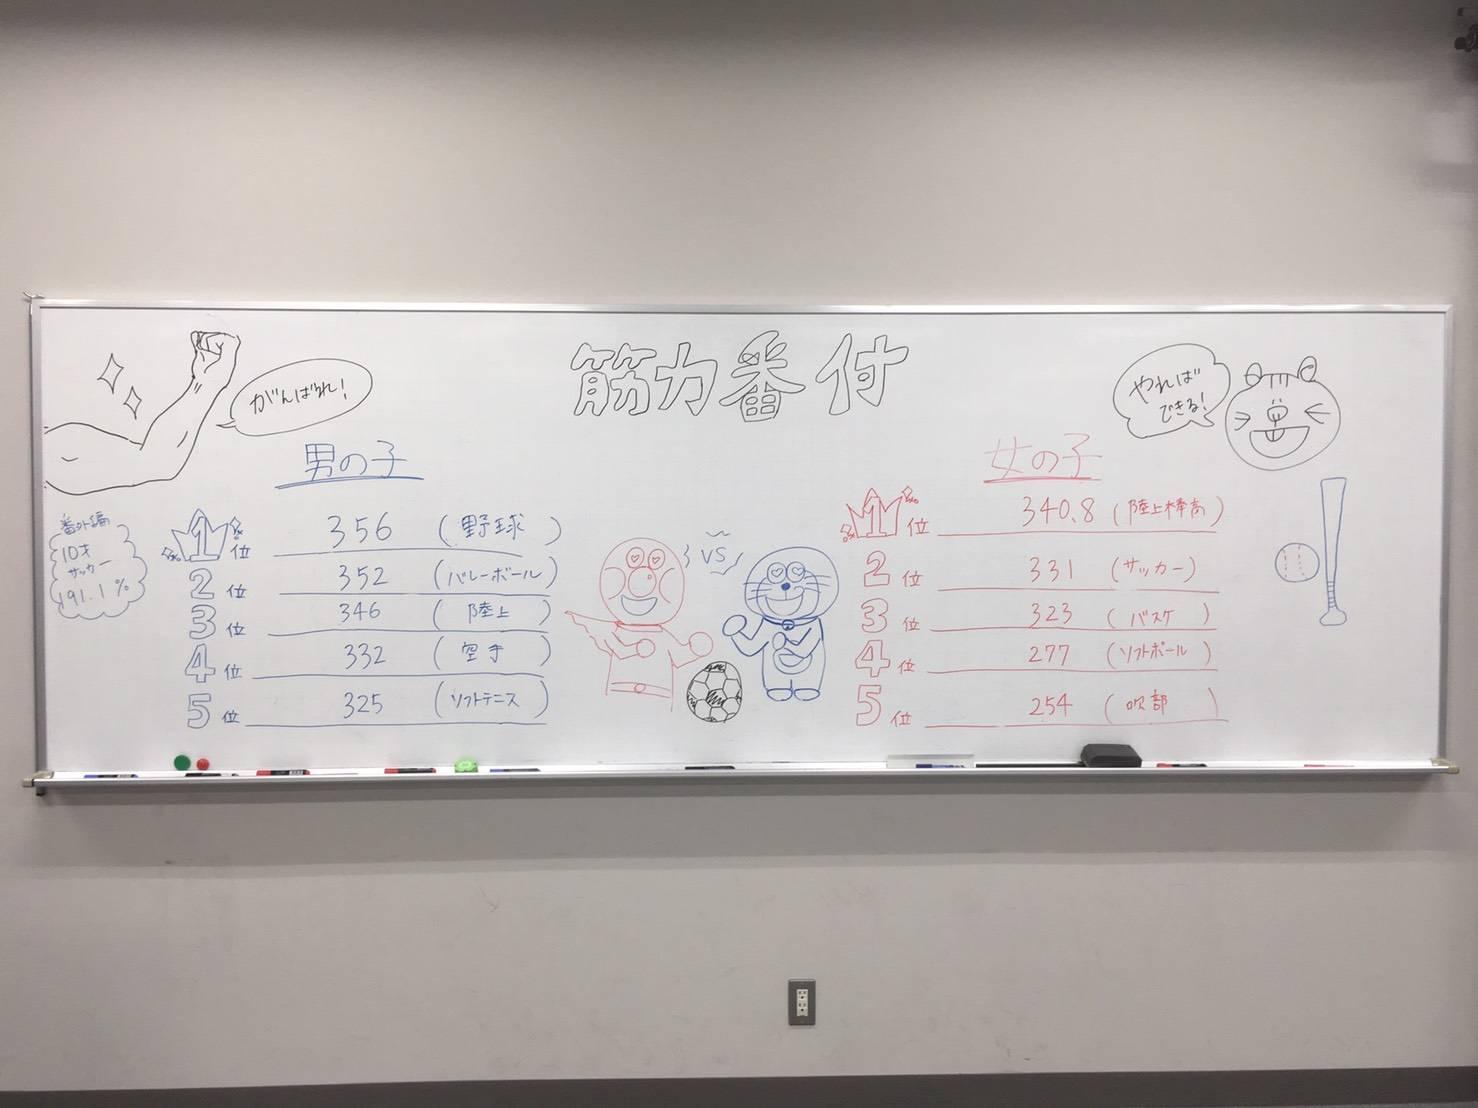 筋力番付
がんばれ!
やれば
できる!
男の子
1位 356 (野球)
2位 352 (バレーボール)
3位 346 (陸上)
4位 332 (空手)
5位 325 (ソフトテニス)
番外編
10才
サッカー
191.1%
VS
女の子
1位 340.8 (陸上棒高)
2位 331 (サッカー)
3位 323 (バスケ)
4位 277 (ソフトボール)
5位 254 (吹部)